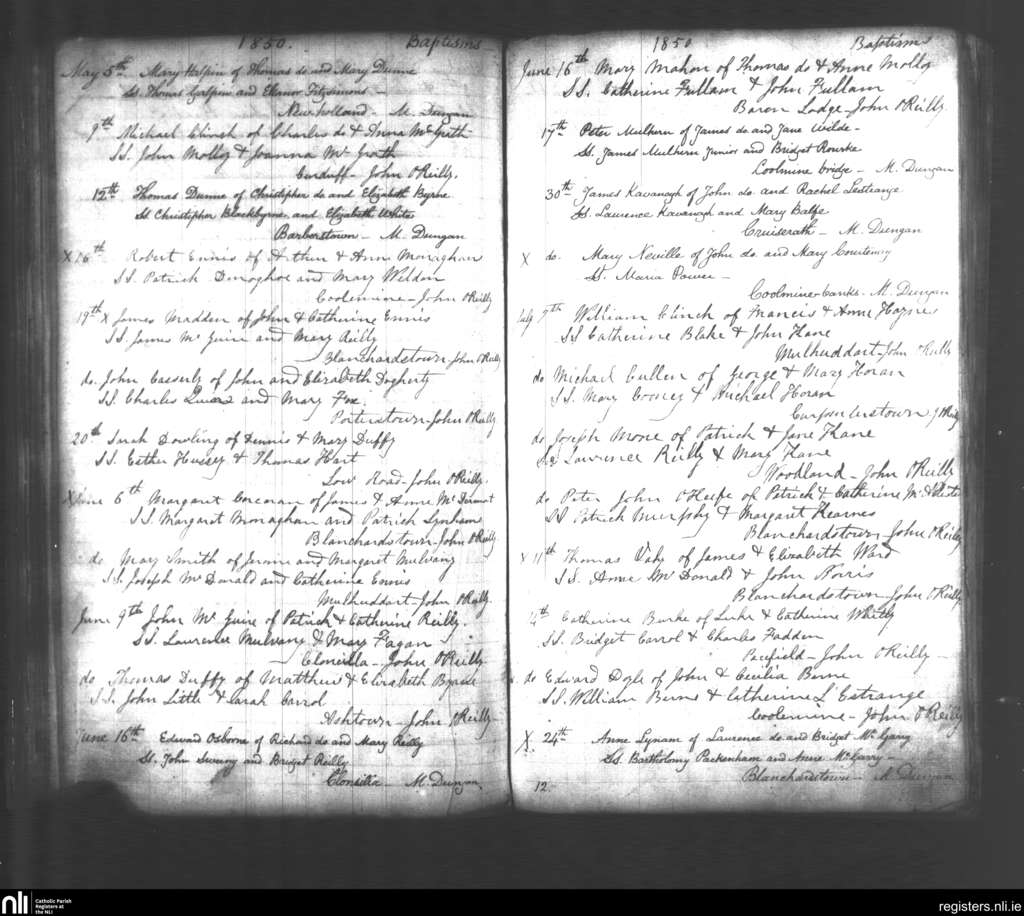 1850. Baptisms
May 5th. Mary Halpin of Thomas do and Mary Dunne
SS. Thomas Halpin and Eleanor Fitzsimons -
New-holland - M. Dungan
9th Michael Clinch of Charles do & Anna McGrath
SS. John Molloy & Joanna McGrath
Corduff - John O'Reilly.
12th Thomas Dunne of Christopher do and Elizabeth Byrne
SS Christopher Blackbyrne and Elizabeth White
Barberstown - M. Dungan
X 16th Robert Ennis of Arthur & Ann Monaghan
SS. Patrick Donoghoe and Mary Weldon
Coolemine - John O'Reilly
19th X James Madden of John & Catherine Ennis
SS. James McGuire and Mary Reilly
Blanchardstown - John O'Reilly
do. John Casserly of John and Elizabeth Dogherty
SS. Charles and Mary Fox.
Porterstown - John O'Reilly
20th Sarah Dowling of Dennis & Mary Duffy
SS. Esther Hussey & Thomas Hart
Low Road - John O'Reilly.
X June 6th Margaret Corcoran of James & Anne McDermot
SS. Margaret Monaghan and Patrick Lynham
Blanchardstown - John O'Reilly
do Mary Smith of Jerome and Margaret Mulvany
SS. Joseph McDonald and Catherine Ennis
Mulhuddart - John O'Reilly.
June 9th John McGuire of Patrick & Catherine Reilly.
SS. Laurence Mulvany & Mary Fagan
Clonsilla - John O'Reilly
do Thomas Duffy of Matthew & Elizabeth Byrne
SS. John Little & Sarah Carrol
Ashtown - John O'Reilly
June 16th Edward Osborne of Richard do and Mary Reilly
SS. John Sweeny and Bridget Reilly
Clonsilla - M. Dungan
1850 Baptisms
June 16th Mary Mahon of Thomas do & Anne Molloy
SS. Catherine Fullam & John Fullam
Baron Lodge - John O'Reilly
17th Peter Mulhern of James do and Jane Wilde -
SS. James Mulhern Junior and Bridget Rourke
Coolmine bridge - M. Dungan
30th James Kavanagh of John do. and Rachel Lestrange
SS. Laurence Kavanagh and Mary Balfe
Cruiserath - M. Dungan
X do. Mary Neville of John do. and Mary Courteney
SS. Maria Power -
Coolmine-banks - M. Dungan
July 7th William Clinch of Francis & Anne Haynes
SS Catherine Blake & John Kane
Mulhuddart - John O'Reilly
do Michael Cullen of George & Mary Horan
SS. Mary Cooney & Michael Horan
J O'Reilly
do Joseph More of Patrick & Jane Kane
SS Lawrence Reilly & Mary Kane
Woodland - John O'Reilly
do Peter John O'Keefe of Patrick & Catherine
SS Patrick Murphy & Margaret Kearnes
Blanchardstown - John O'Reilly
X 11th Thomas of James & Elizabeth Ward
SS. Anne McDonald & John Norris
Blanchardstown - John O'Reilly
14th Catherine Burke of Luke & Catherine
SS. Bridget Carrol & Charles Fadden
- John O'Reilly -
do Edward Doyle of John & Cecilia Berne
SS. William Berne & Catherine L'Estrange
Coolemine - John O'Reilly
X 24th Anne Lynam of Laurence do and Bridget
SS. Bartholomy Packenham and Anne McGarry -
Blanchardstown - M. Dungan
12.
nli Catholic Parish
Registers at
the NLI
registers.nli.ie